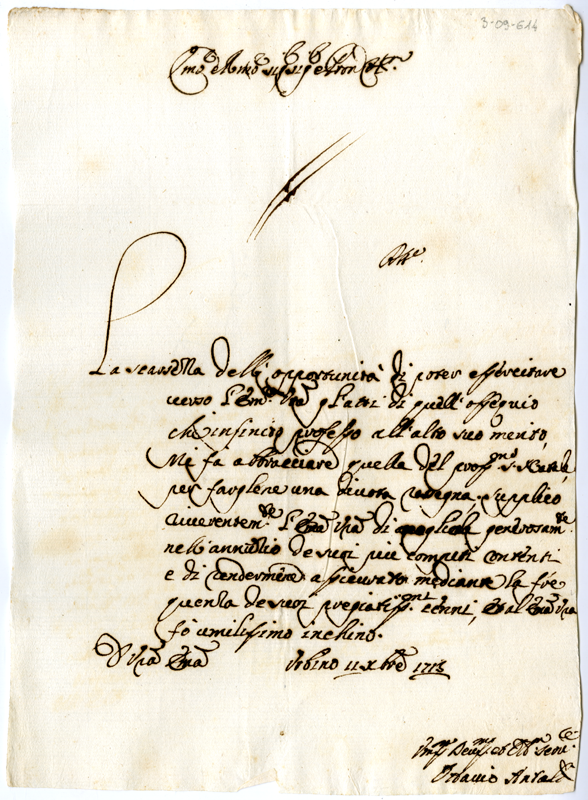 3-09-614
La scarsezza dell' opportunità di poter essercitare
verso l'Em. Vra gl'atti di quell' ossequio
che infinito professo all' alto suo merito,
Mi fà abbracciare quella del pross.mo S. Natale
per fargliene una divota rasegna. Supplico
riverentem.te l'Em.a V'ra di accoglierla generosam.te
nell' annuntio de suoi più compiti contenti
e di rendermene assicurato mediante la fre
quenza de suoi pregiatiss.mi cenni, et all' Em.a V'ra
fò umilissimo inchino.
Di V'ra Em.a Urbino 11 Xbre 1713
Ottavio Antaldi